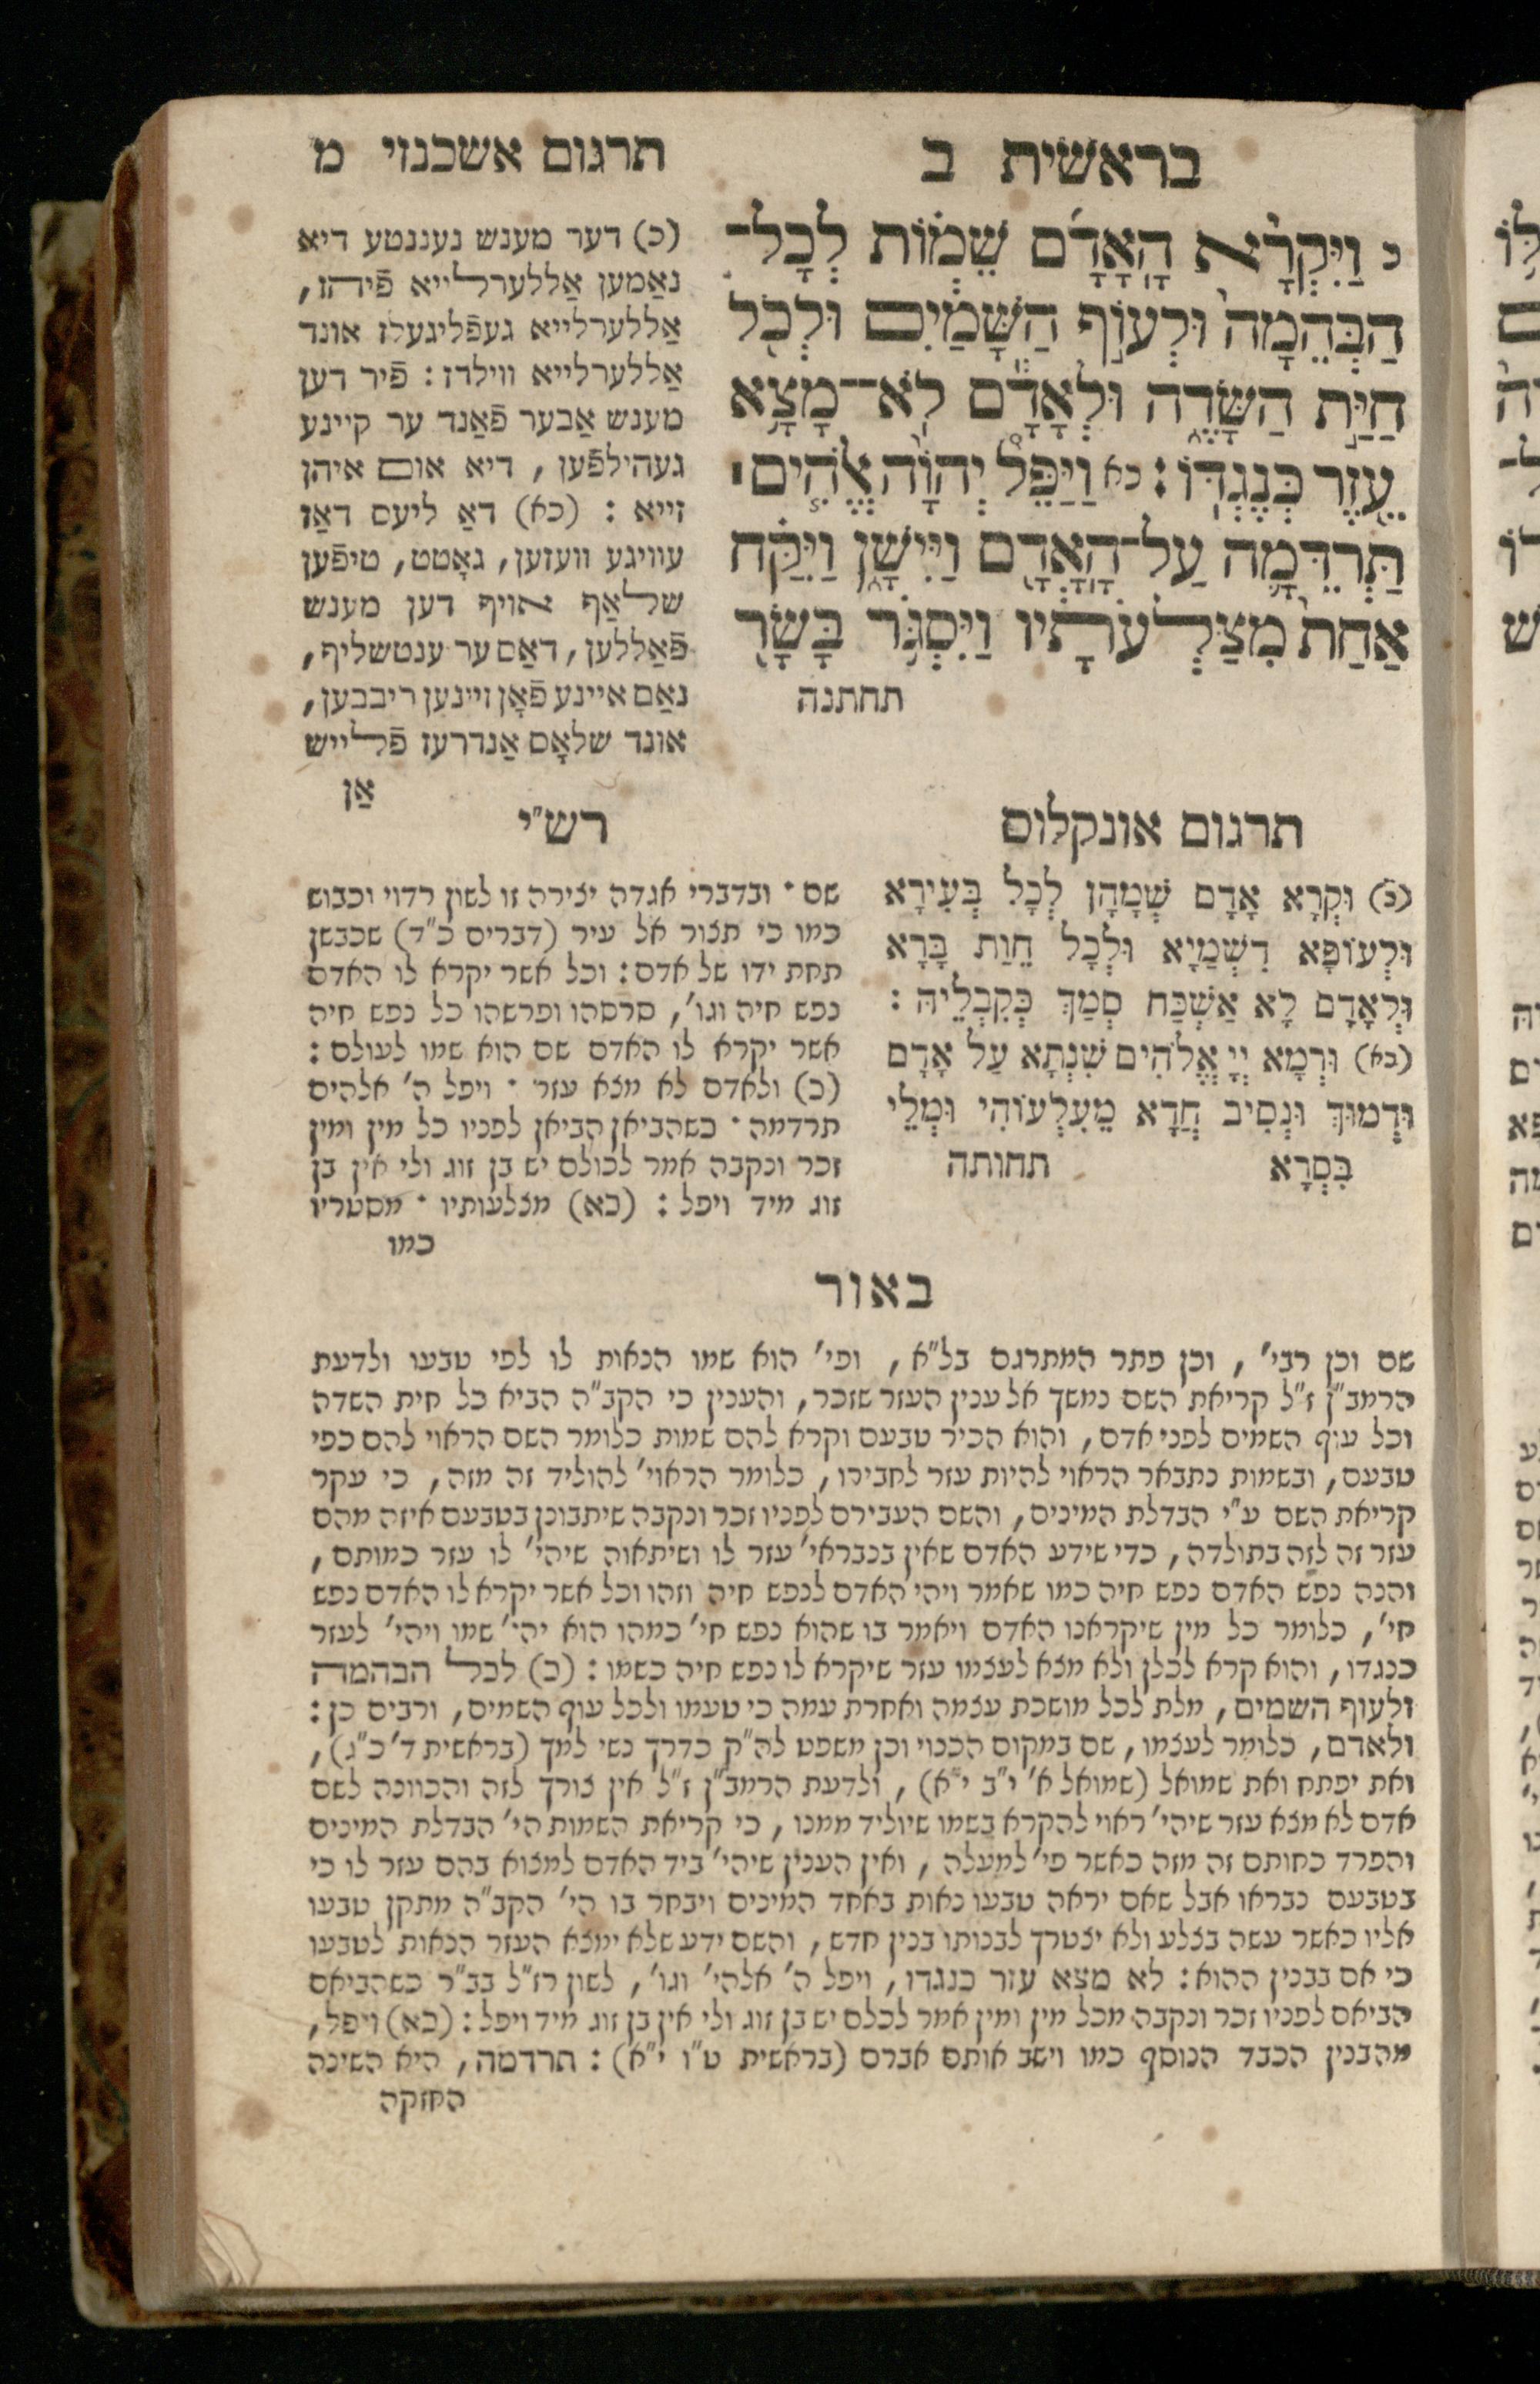 בראשית ב
תרגום אשכנזי מ
כ וַיִּקְרָ֨א הָֽאָדָ֜ם שֵׁמ֗וֹת לְכָל־
הַבְּהֵמָה֙ וּלְע֣וֹף הַשָּׁמַ֔יִם וּלְכֹ֖ל
חַיַּ֣ת הַשָּׂדֶ֑ה וּלְאָדָ֕ם לֹֽא־מָצָ֥א
עֵ֖זֶר כְּנֶגְדּֽוֹ: כא וַיַּפֵּל֩ יְהוָֹ֨ה אֱלֹהִ֧ים׀
תַּרְדֵּמָ֛ה עַל־הָֽאָדָ֖ם וַיִּישָׁ֑ן וַיִּקַּ֗ח
אַחַת֙ מִצַּלְעֹתָ֔יו וַיִּסְגֹּ֥ר בָּשָׂ֖ר
תחתנה
(כ) דער מענש נעננטע דיא
נאַמען אַללערלייא פֿיהז,
אַללערלייא געפֿליגעלז אונד
אַללערלייא ווילדז: פֿיר דען
מענש אַבער פֿאַנד ער קיינע
געהילפֿען, דיא אום איהן
זייא: (כא) דאַ ליעס דאַז
עוויגע וועזען, גאָטט, טיפֿען
שלאַף אויף דען מענש
פֿאַללען, דאַס ער ענטשליף,
נאַם איינע פֿאָן זיינען ריבבען,
אונד שלאָס אַנדרעז פֿלייש
אַן
תרגום אונקלוס
(כ) וּקְרָא אָדָם שְׁמָהָן לְכָל בְּעִירָא
וּלְעוֹפָּא דִשְׁמַיָא וּלְכָל חֵוַת בָּרָא
וּלְאָדָם לָא אַשְׁכַּח סְמַךְ כְּקִבְלֵיהּ:
(כא) וּרְמָא יְיָ אֱלֹהִים שִׁנְתָא עַל אָדָם
וּדְמוּךְ וּנְסִיב חֲדָא מֵעִלְעוֹהִי וּמְלֵי
בִּסְרָא תחותה
רש"י
שם · ובדברי אגדה יצירה זו לשון רדוי וכבוש
כמו כי תצור אל עיר (דברים כ"ד) שכבשן
תחת ידו של אדם: וכל אשר יקרא לו האדם
נפש חיה וגו', סרסהו ופרשהו כל נפש חיה
אשר יקרא לו האדם שם הוא שמו לעולם:
(כ) ולאדם לא מצא עזר · ויפל ה' אלהים
תרדמה · כשהביאן הביאן לפניו כל מין ומין
זכר ונקבה אמר לכולם יש בן זוג ולי אין בן
זוג מיד ויפל: (כא) מצלעותיו · מסטריו
כמו
באור
שם וכן רבי', וכן פתר המתרגם בל"א, ופי' הוא שמו הנאות לו לפי טבעו ולדעת
הרמב"ן ז"ל קריאת השם נמשך אל ענין העזר שזכר, והענין כי הקב"ה הביא כל חית השדה
וכל עוף השמים לפני אדם, והוא הכיר טבעם וקרא להם שמות כלומר השם הראוי להם כפי
טבעם, ובשמות נתבאר הראוי להיות עזר לחבירו, כלומר הראוי' להוליד זה מזה, כי עקר
קריאת השם ע"י הבדלת המינים, והשם העבירם לפניו זכר ונקבה שיתבונן בטבעם איזה מהם
עזר זה לזה בתולדה, כדי שידע האדם שאין בנבראי' עזר לו ושיתאוה שיהי' לו עזר כמותם,
והנה נפש האדם נפש חיה כמו שאמר ויהי האדם לנפש חיה וזהו וכל אשר יקרא לו האדם נפש
חי', כלומר כל מין שיקראנו האדם ויאמר בו שהוא נפש חי' כמהו הוא יהי' שמו ויהי' לעזר
כנגדו, והוא קרא לכלן ולא מצא לעצמו עזר שיקרא לו נפש חיה כשמו: (כ) לכל הבהמה
ולעוף השמים, מלת לכל מושכת עצמה ואחרת עמה כי טעמו ולכל עוף השמים, ורבים כן:
ולאדם, כלומר לעצמו, שם במקום הכנוי וכן משפט לה"ק כדרך נשי למך (בראשית ד' כ"ג),
ואת יפתח ואת שמואל (שמואל א' י"ב י"א), ולדעת הרמב"ן ז"ל אין צורך לזה והכוונה לשם
אדם לא מצא עזר שיהי' ראוי להקרא בשמו שיוליד ממנו, כי קריאת השמות הי' הבדלת המינים
והפרד כחותם זה מזה כאשר פי' למעלה, ואין הענין שיהי' ביד האדם למצוא בהם עזר לו כי
בטבעם נבראו אבל שאם יראה טבעו נאות באחד המינים ויבחר בו הי' הקב"ה מתקן טבעו
אליו כאשר עשה בצלע ולא יצטרך לבנותו בנין חדש, והשם ידע שלא ימצא העזר הנאות לטבעו
כי אם בבנין ההוא: לא מצא עזר כנגדו, ויפל ה' אלהי' וגו', לשון רז"ל בב"ר כשהביאם
הביאם לפניו זכר ונקבה מכל מין ומין אמר לכלם יש בן זוג ולי אין בן זוג מיד ויפל: (כא) ויפל,
מהבנין הכבד הנוסף כמו וישב אותם אברם (בראשית ט"ו י"א): תרדמה, היא השינה
החזקה